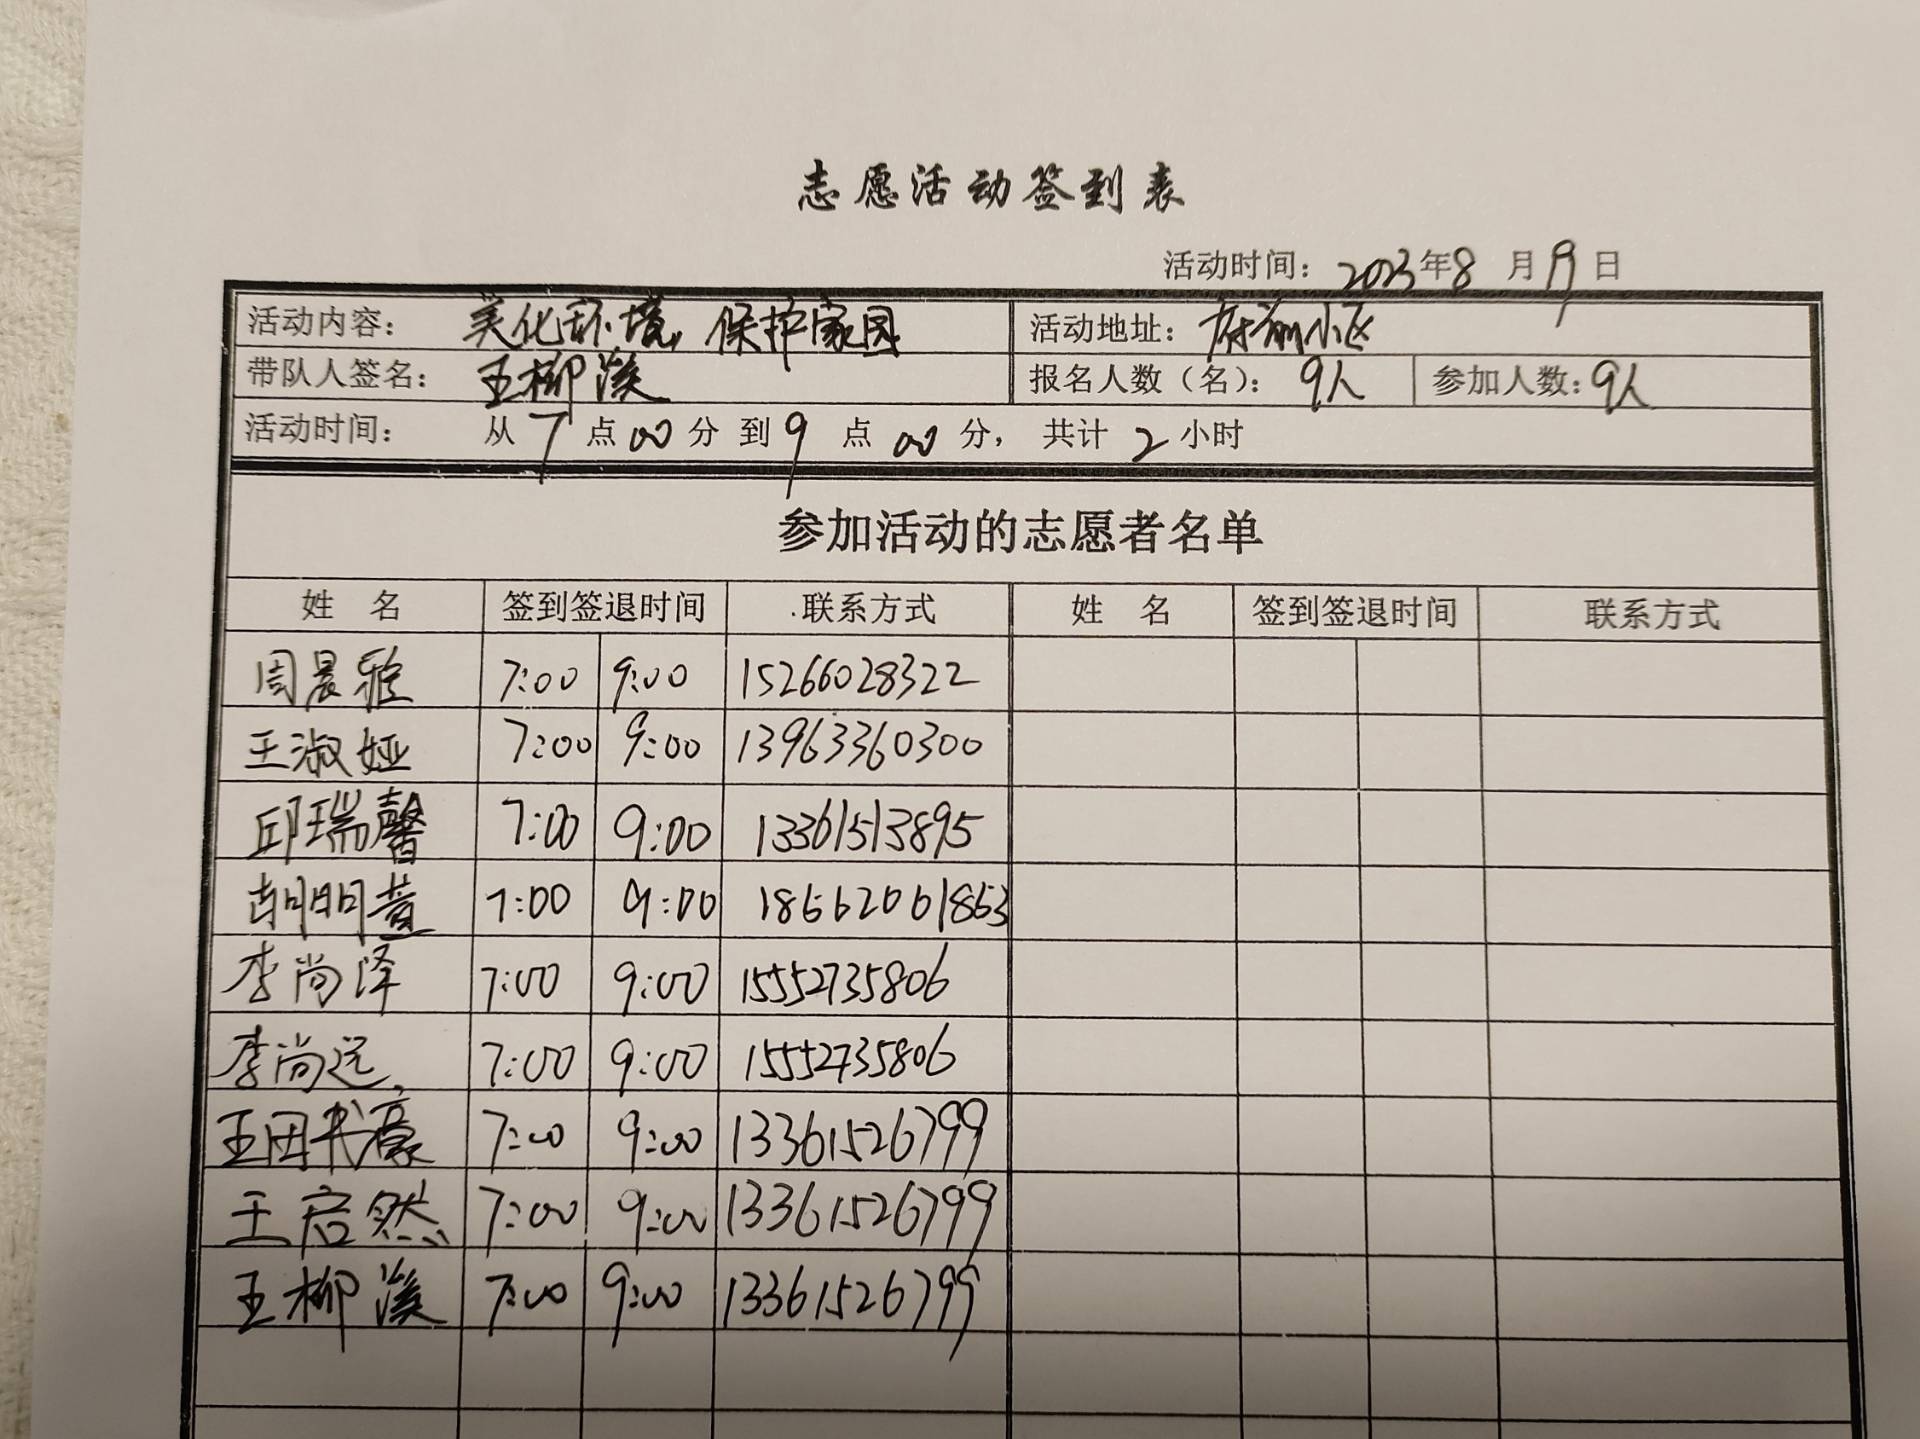 志愿活动签到表
活动时间：2023年8月19日
活动内容：美化环境，保护家园 活动地址：府前小区
带队人签名：王柳溪 报名人数（名）：9人 参加人数：9人
活动时间：从7点00分到9点00分，共计2小时
参加活动的志愿者名单
姓 名 签到签退时间 联系方式 姓 名 签到签退时间 联系方式
周晨雅 7:00 9:00 15266028322
王淑娅 7:00 9:00 13963360300
邱瑞馨 7:00 9:00 13361513895
胡明萱 7:00 9:00 18662061863
李尚泽 7:00 9:00 15552735806
李尚远 7:00 9:00 15552735806
王田书豪 7:00 9:00 13361526799
王启然 7:00 9:00 13361526799
王柳溪 7:00 9:00 13361526799